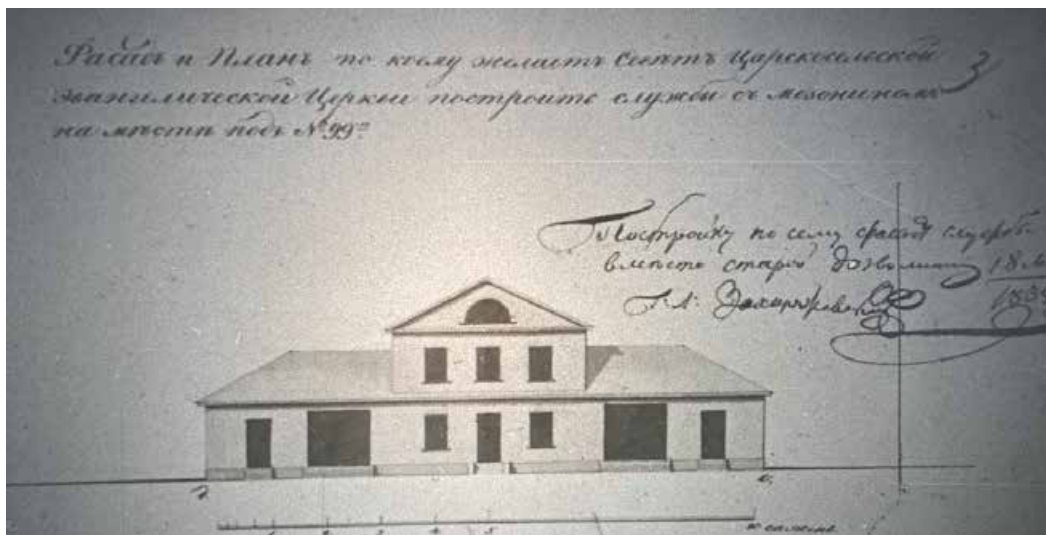 Фасадъ и Планъ по коему желаетъ Советъ Царскосельской
Эвангилической Церкви построить службы съ мезониномъ
на месте подъ № 99м
3
Постройку по сему фасаду службъ
вместо старой дозволить 18
Г. Л: Захаржевский 183
1 2 3 4 5 10 сажень